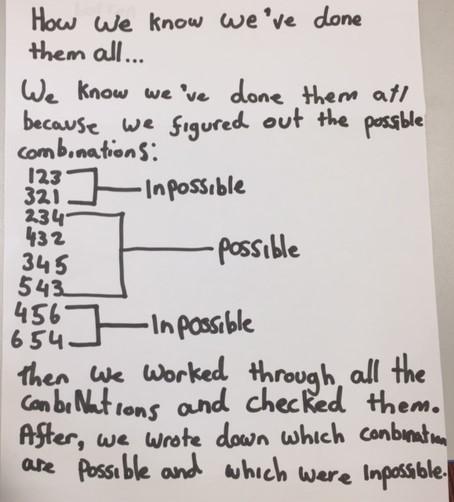 How we know we've done
them all...
We know we've done them all
because we figured out the possible
combinations:
123
321
Inpossible
234
432
345
543
possible
456
654
Inpossible
then we worked through all the
conbiNations and checked them.
After, we wrote down which conbination
are possible and which were inpossible.